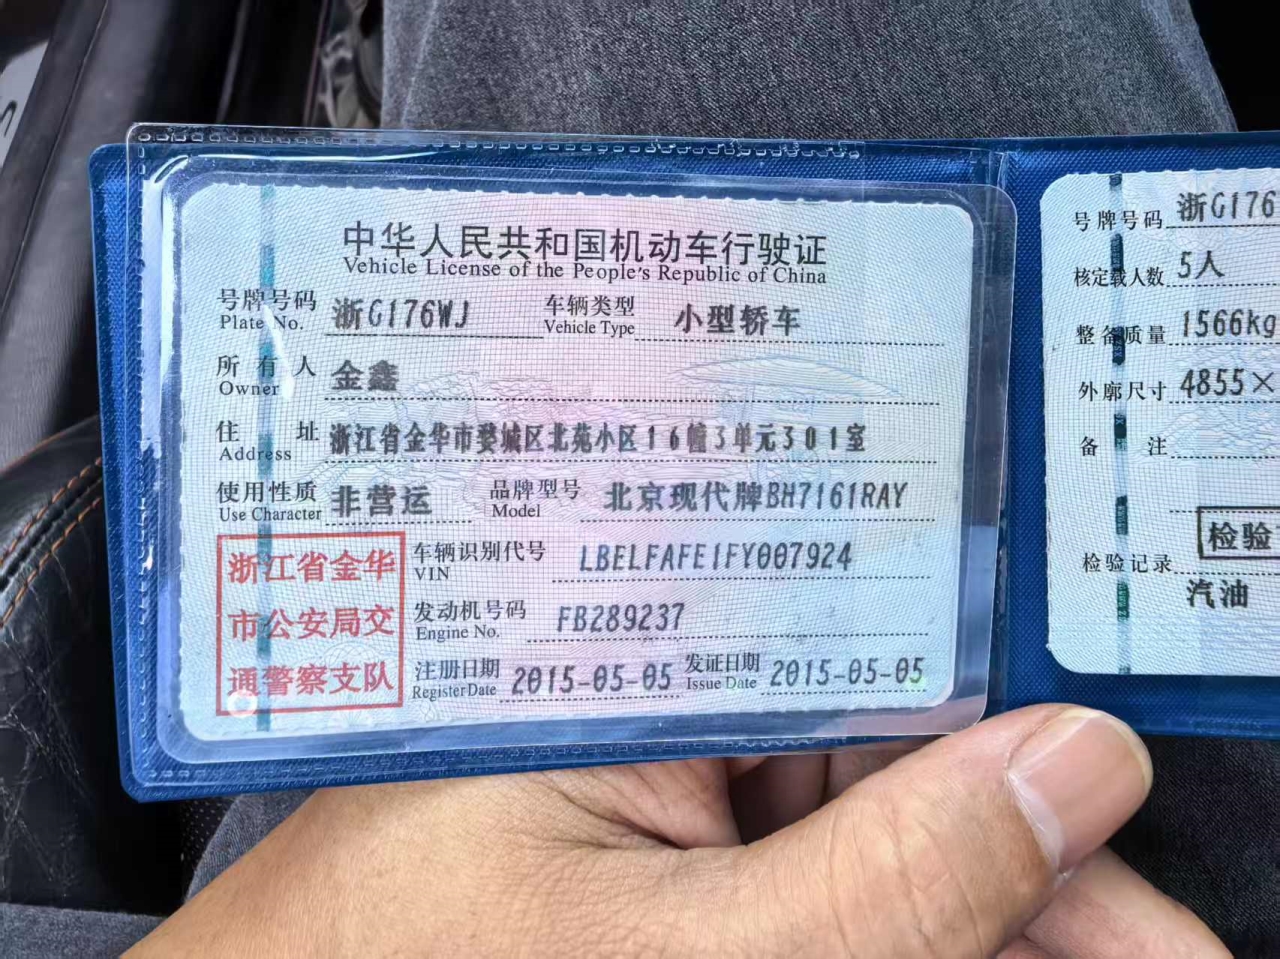 中华人民共和国机动车行驶证
Vehicle License of the People's Republic of China
号牌号码 浙G176WJ 车辆类型 小型轿车
Plate No. Vehicle Type
所有人 金鑫
Owner
住址 浙江省金华市婺城区北苑小区16幢3单元301室
Address
使用性质 非营运 品牌型号 北京现代牌BH7161RAY
Use Character Model
浙江省金华
市公安局交
通警察支队
车辆识别代号 LBELFAFE1FY007924
VIN
发动机号码 FB289237
Engine No.
注册日期 2015-05-05 发证日期 2015-05-05
Register Date Issue Date
号牌号码 浙G176
核定载人数 5人
整备质量 1566kg
外廓尺寸 4855×
备注
检验
检验记录
汽油